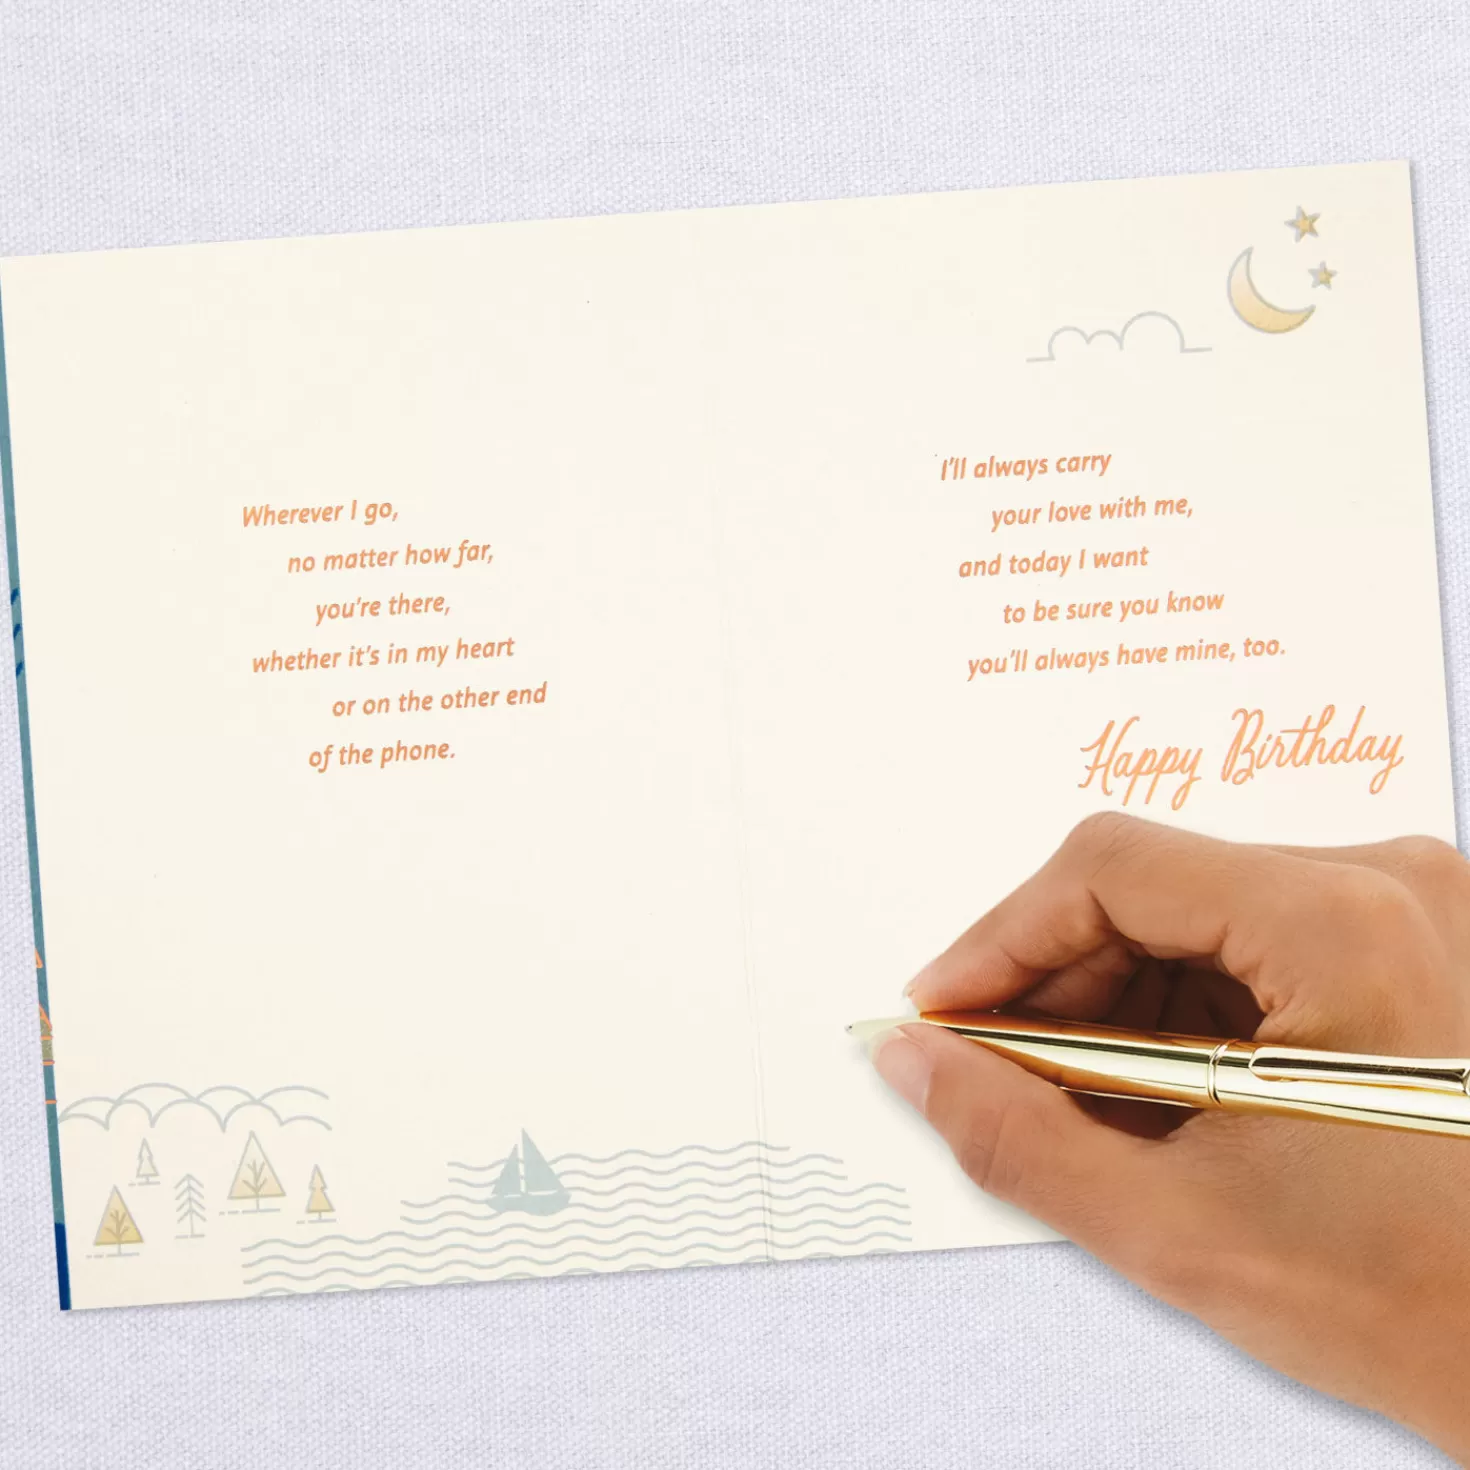 Wherever I go,
no matter how far,
you're there,
whether it's in my heart
or on the other end
of the phone.
I'll always carry
your love with me,
and today I want
to be sure you know
you'll always have mine, too.
Happy Birthday